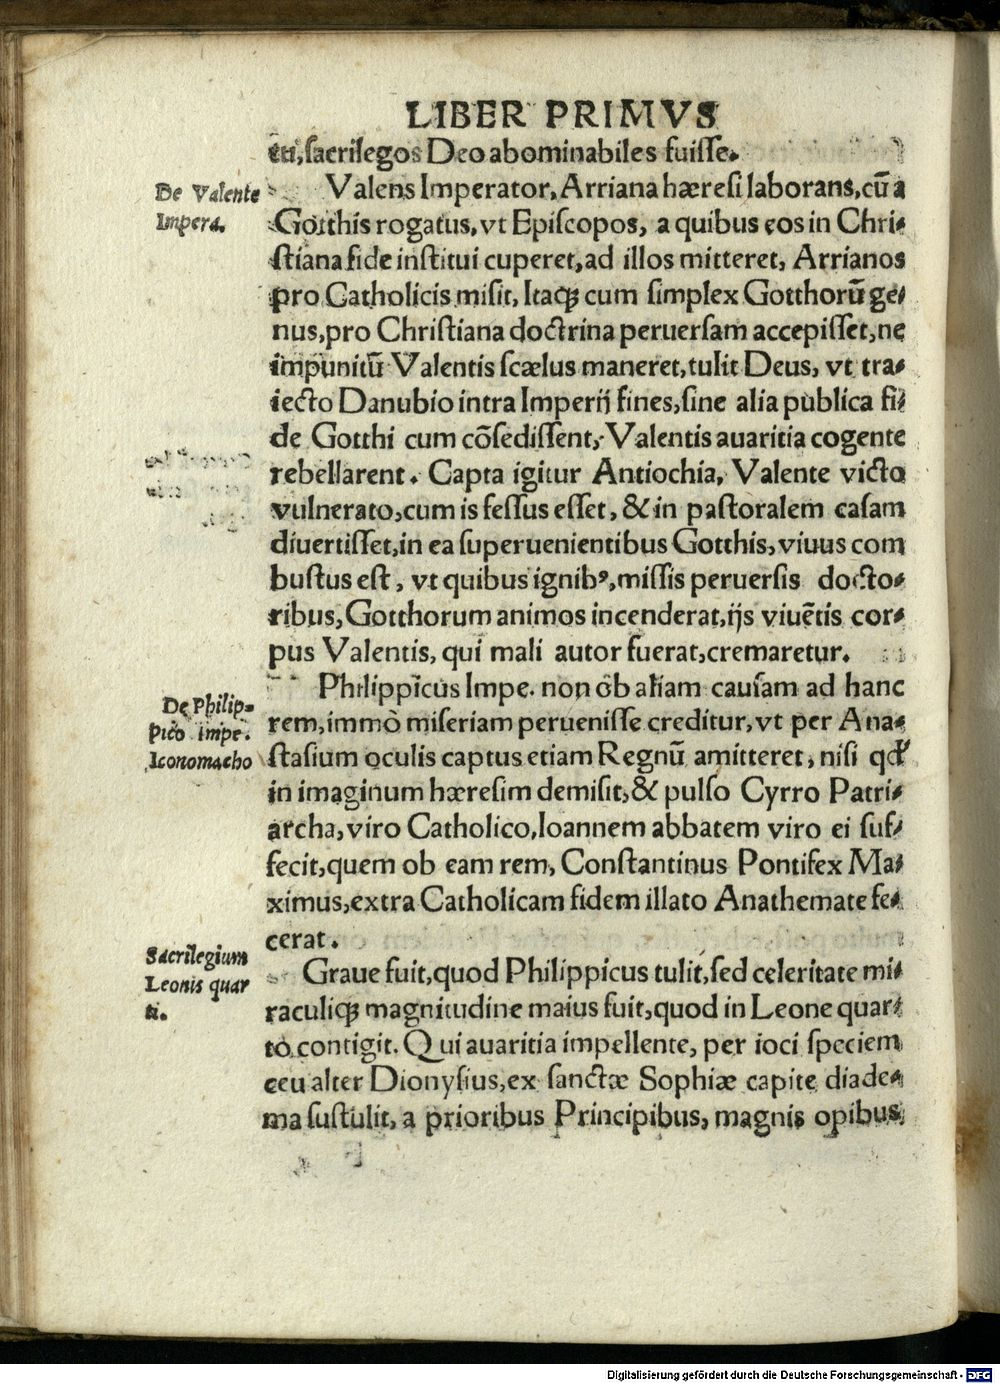 LIBER PRIMVS
cti, sacrilegos Deo abominabiles fuiſſe.
De Valente
Impera.
Valens Imperator, Arriana hæreſi laborans, cũ a
Gotthis rogatus, vt Epiſcopos, a quibus eos in Chri-
ſtiana fide inſtitui cuperet, ad illos mitteret, Arrianos
pro Catholicis miſit, Itaqꝫ cum ſimplex Gotthorũ ge-
nus, pro Chriſtiana doctrina peruerſam accepiſſet, ne
impunitũ Valentis ſcælus maneret, tulit Deus, vt tra-
iecto Danubio intra Imperij fines, ſine alia publica fi-
de Gotthi cum cõſediſſent, Valentis auaritia cogente
rebellarent. Capta igitur Antiochia, Valente victo
vulnerato, cum is feſſus eſſet, & in paſtoralem caſam
diuertiſſet, in ea ſuperuenientibus Gotthis, viuus com
buſtus eſt, vt quibus ignibꝰ, miſſis peruerſis docto-
ribus, Gotthorum animos incenderat, ijs viuẽtis cor-
pus Valentis, qui mali autor fuerat, cremaretur.
De Philip-
pico impe.
Iconomacho
Philippicus Impe. non ob aliam cauſam ad hanc
rem, immò miſeriam perueniſſe creditur, vt per Ana-
ſtaſium oculis captus etiam Regnũ amitteret, niſi qđ
in imaginum hæreſim demiſit, & pulſo Cyrro Patri-
archa, viro Catholico, Ioannem abbatem viro ei ſuf-
fecit, quem ob eam rem, Conſtantinus Pontifex Ma-
ximus, extra Catholicam fidem illato Anathemate fe-
cerat.
Sacrilegium
Leonis quar
ti.
Graue fuit, quod Philippicus tulit, ſed celeritate mi-
raculiqꝫ magnitudine maius fuit, quod in Leone quar-
to contigit. Qui auaritia impellente, per ioci ſpeciem
ceu alter Dionyſius, ex ſanctæ Sophiæ capite diade-
ma ſuſtulit, a prioribus Principibus, magnis opibus
Digitalisierung gefördert durch die Deutsche Forschungsgemeinschaft - DFG